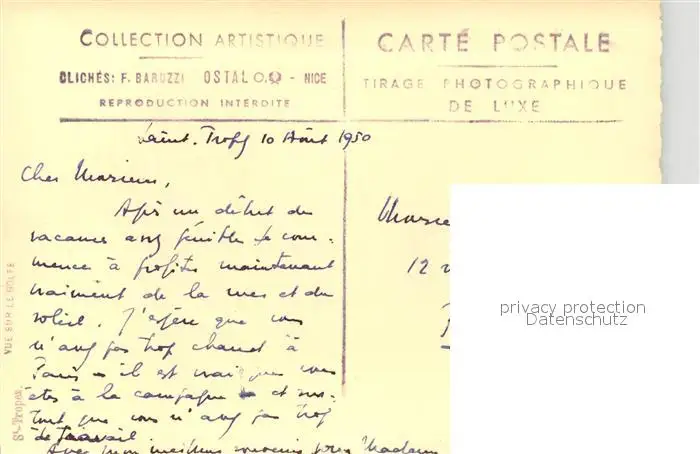 COLLECTION ARTISTIQUE
CLICHÉS: F. BARUZZI OSTALOO - NICE
REPRODUCTION INTERDITE
CARTE POSTALE
TIRAGE PHOTOGRAPHIQUE
DE LUXE
Saint. Trop 10 Août 1950
Cher Monsieur,
Après un début de
vacances assez pénible je com-
mence à profiter maintenant
vraiment de la mer et du
soleil. J'espère que vous
n'avez pas trop chaud à
Paris - il est vrai que vous
êtes à la campagne et sur-
tout que vous n'avez pas trop
de travail
Avec mon meilleur souvenir pour Madame
Monsie
12
VUE SUR LE GOLFE
St-Tropez.
privacy protection
Datenschutz